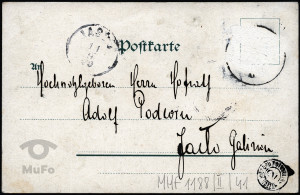 Postkarte
An
Hochwohlgeboren Herrn Hofrath
Adolf Podczori
Jasło Galizien
MHF 1188/II/41
MuFo